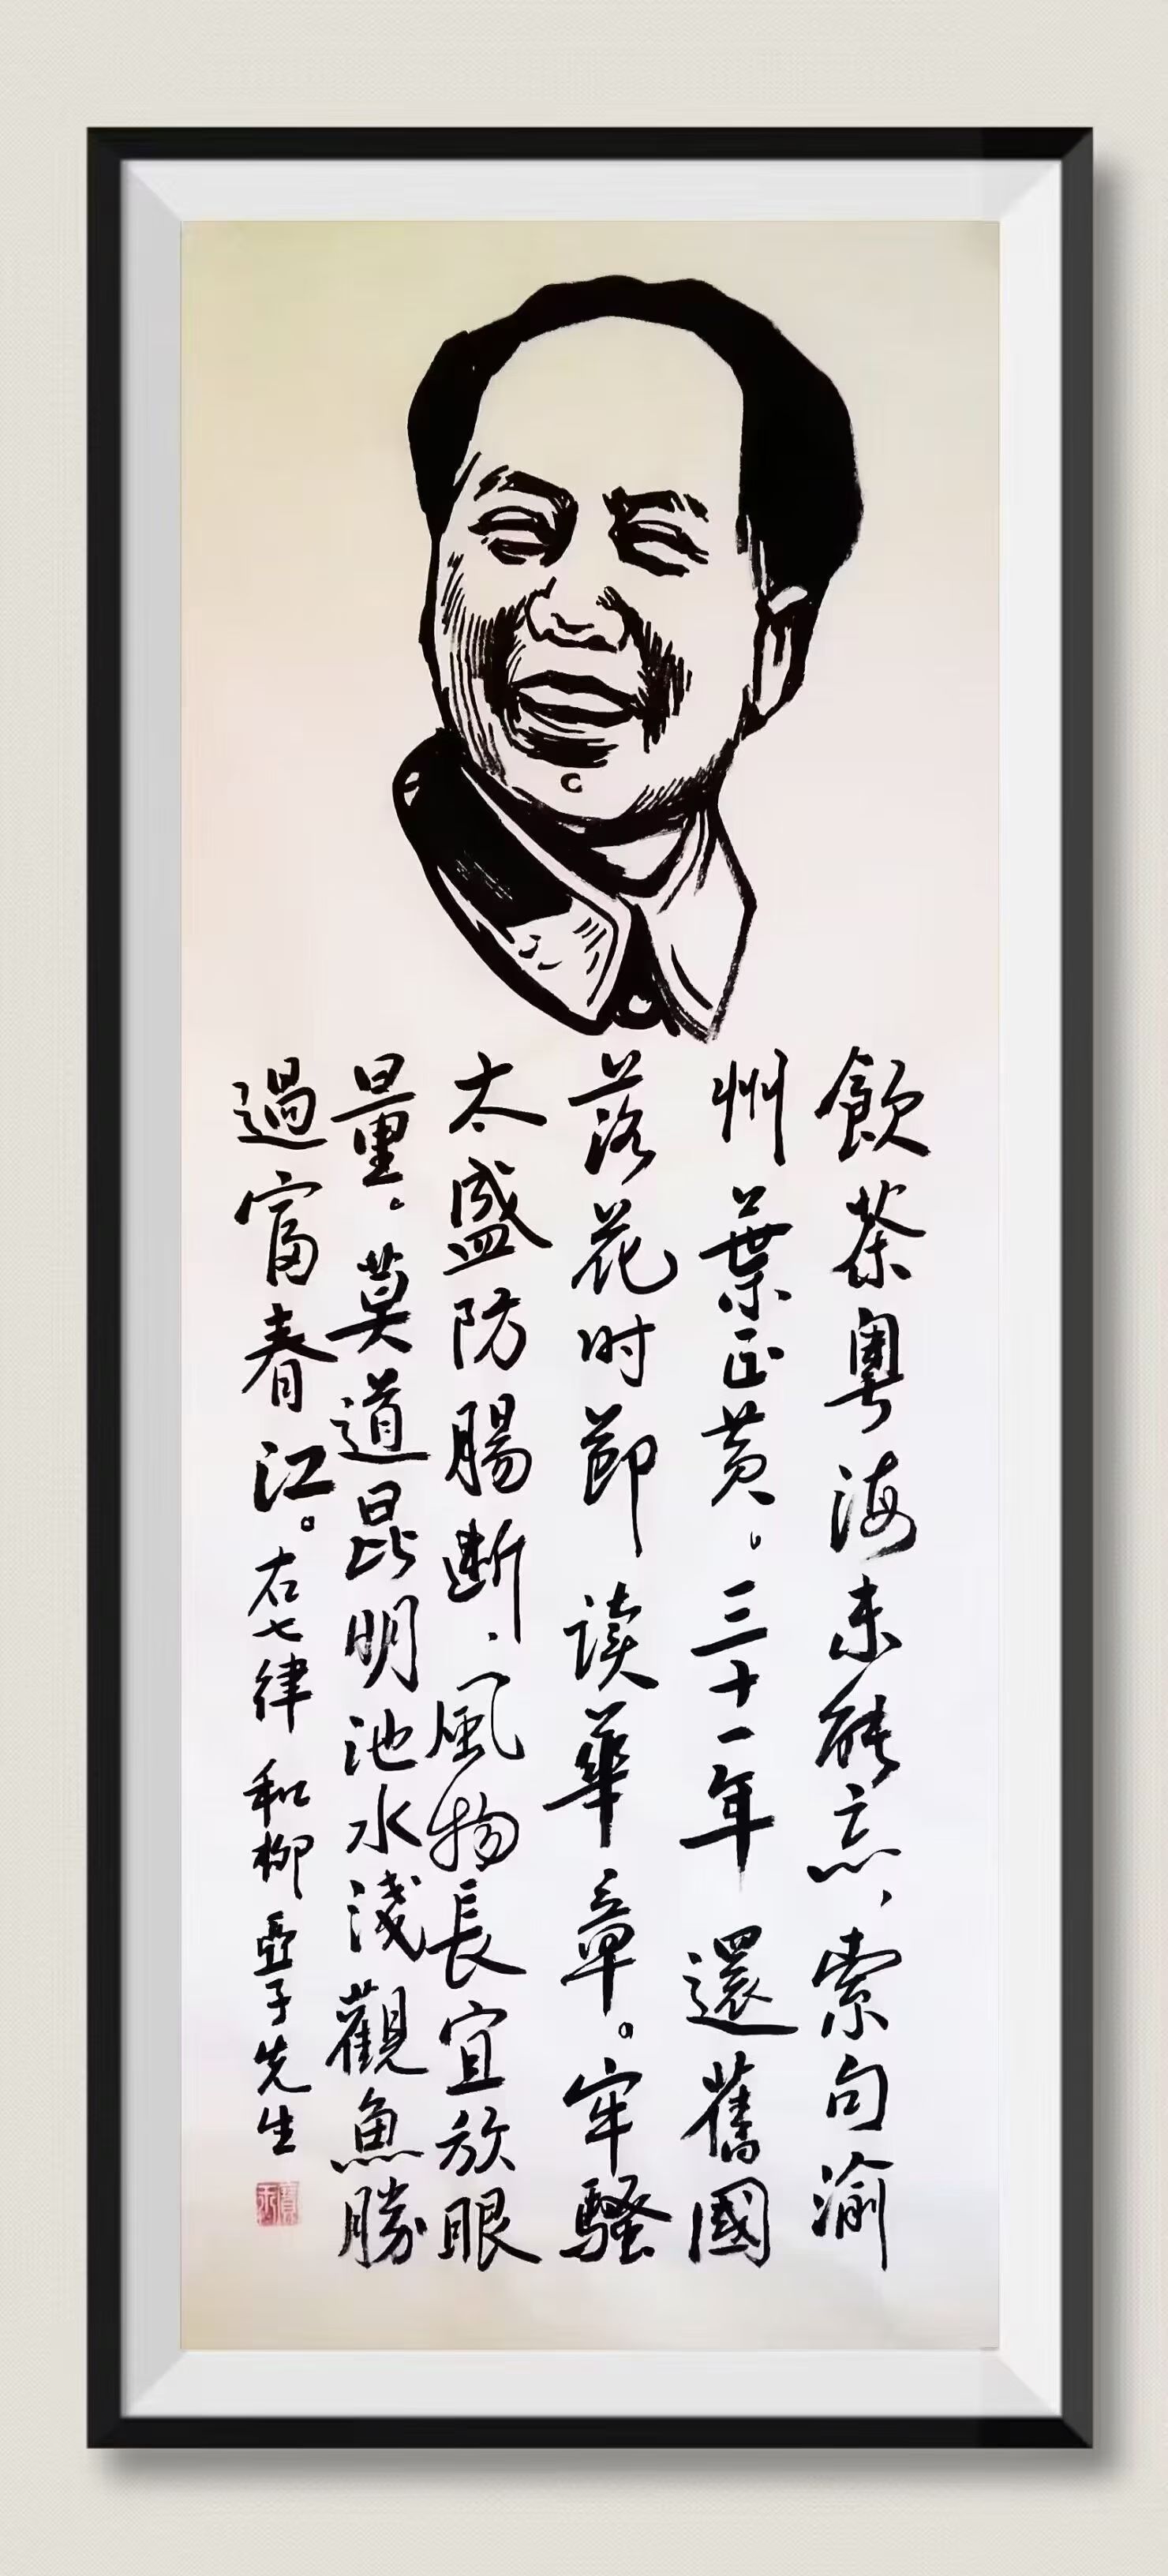 飲茶粵海未能忘，索句渝
州葉正黄。三十一年還舊國
落花时節读華章。牢騷
太盛防腸斷，風物長宜放眼
量。莫道昆明池水淺觀魚勝
過富春江。右七律和柳亞子先生